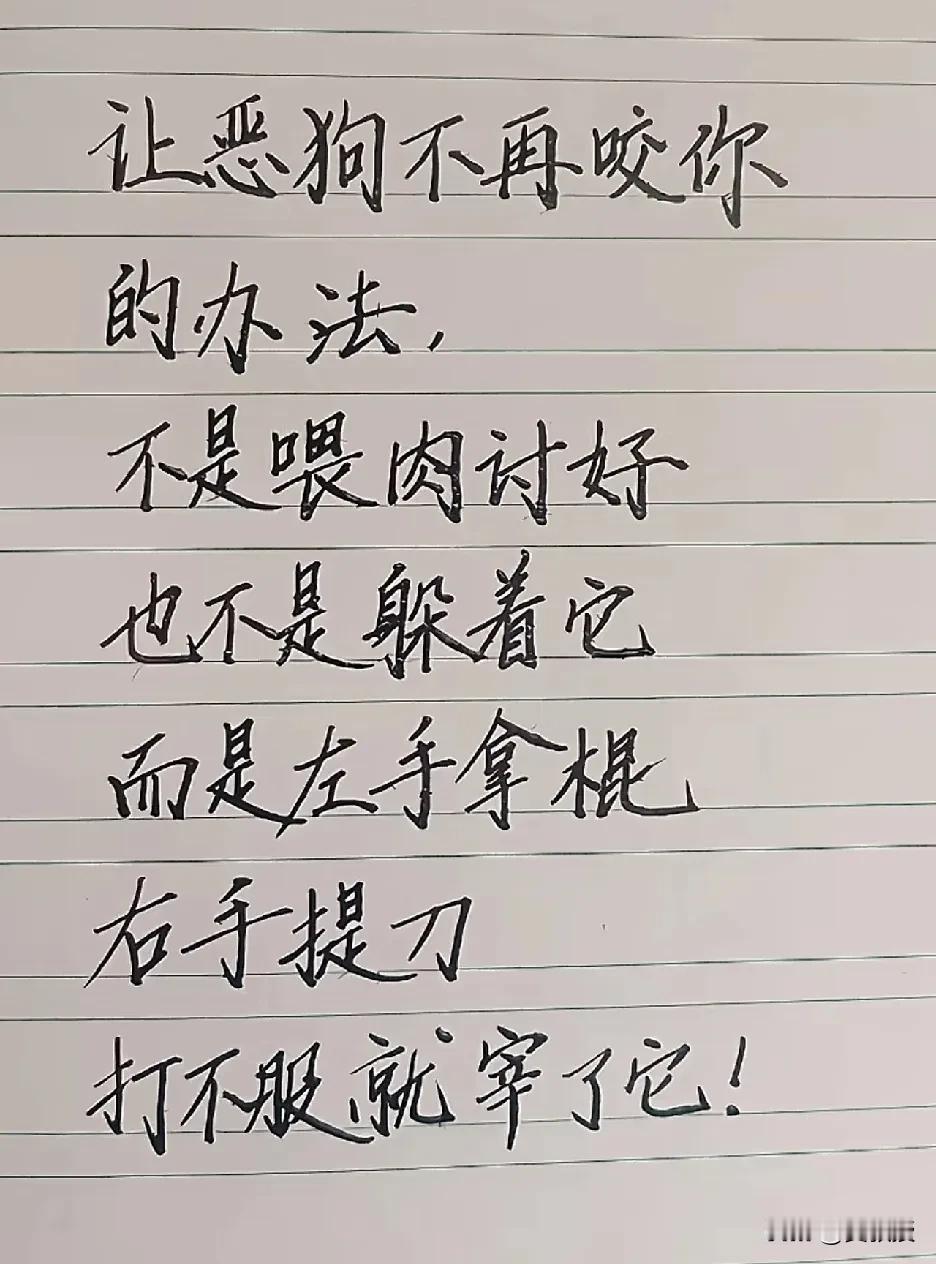 让恶狗不再咬你
的办法，
不是喂肉讨好
也不是躲着它
而是左手拿棍
右手提刀
打不服就宰了它！